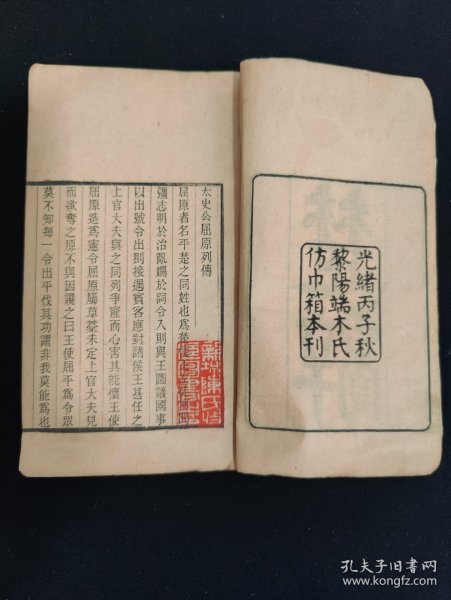 光緒丙子秋
黎陽端木氏
仿巾箱本刊
太史公屈原列傳
屈原者名平楚之同姓也為楚
彊志明於治亂嫺於詞令入則與王圖議國事
以出號令出則接遇賓客應對諸侯王甚任之
上官大夫與之同列爭寵而心害其能懷王使
屈原造為憲令屈原屬草藳未定上官大夫見
而欲奪之原不與因讒之曰王使屈平為令眾
莫不知每一令出平伐其功謂非我莫能為也
孔夫子旧书网
www.kongfz.com